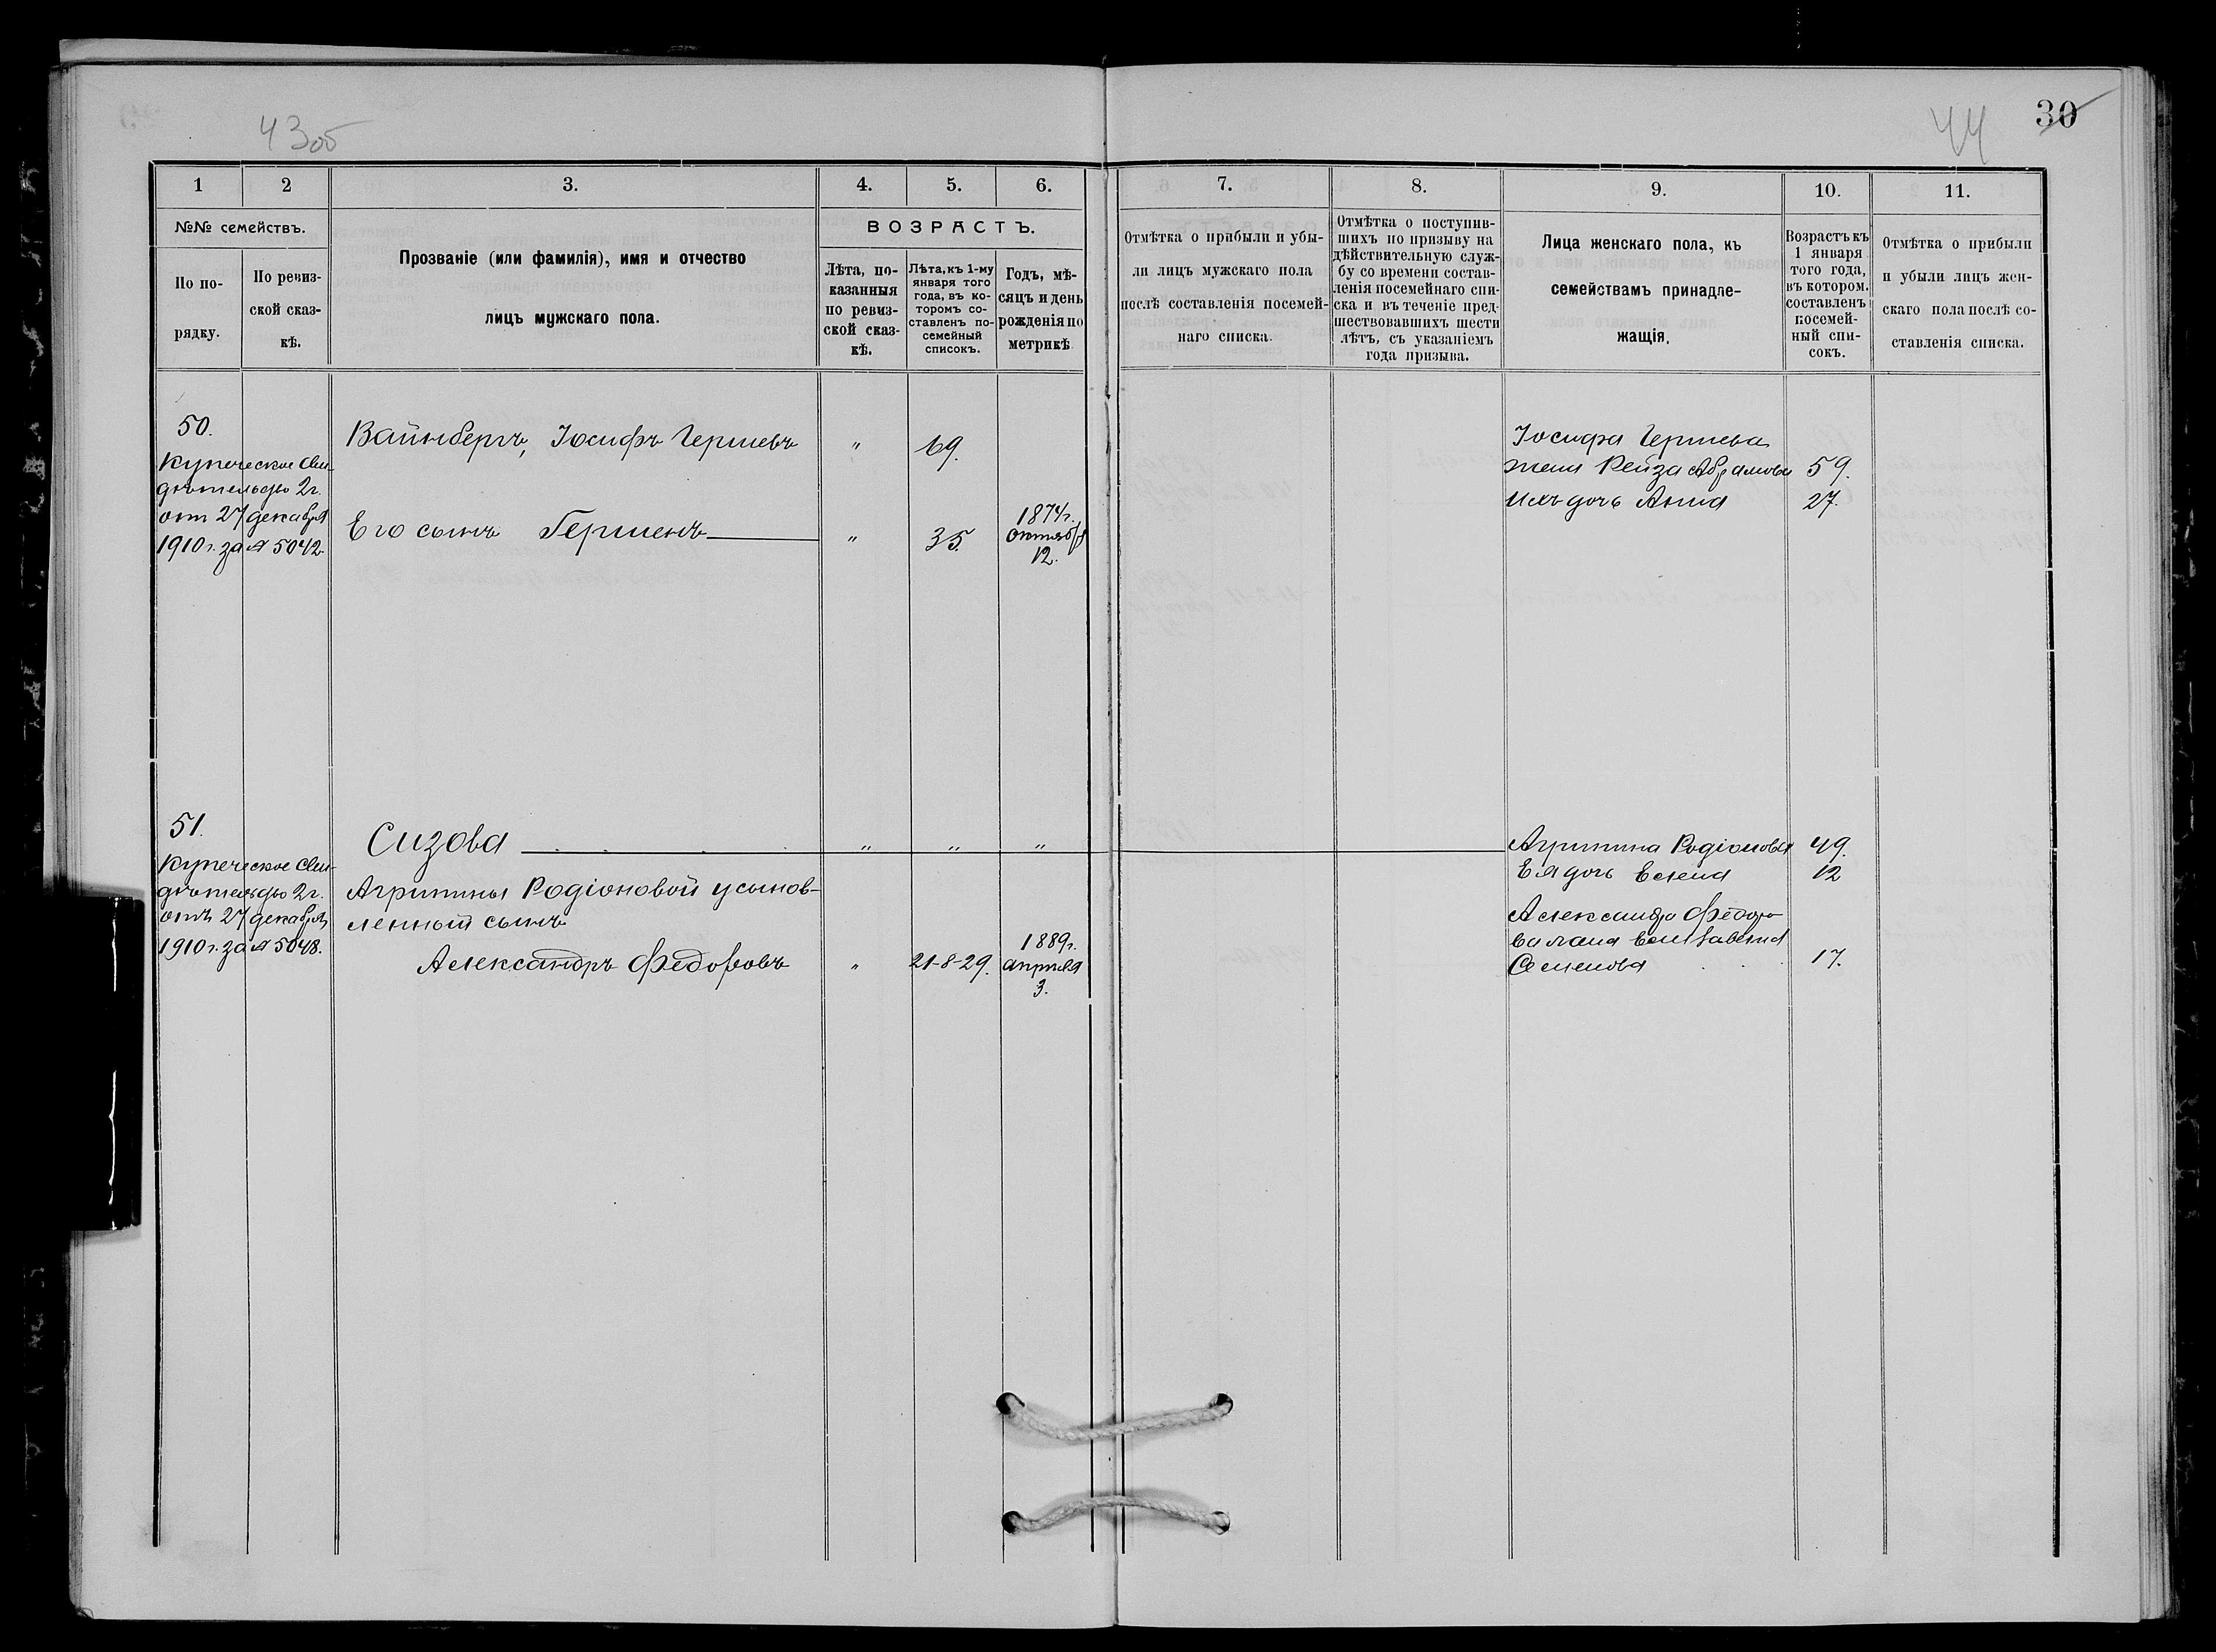 43об
44
30
1
2
3.
4.
5.
6.
7.
8.
9.
10.
11.
№№ семействъ.
По по-
рядку.
По ревиз-
ской сказ-
кѣ.
Прозваніе (или фамилія), имя и отчество
лицъ мужскаго пола.
ВОЗРАСТЪ.
Лѣта, по-
казанныя
по ревиз-
ской сказ-
кѣ.
Лѣта, къ 1-му
января того
года, въ ко-
торомъ со-
ставленъ по-
семейный
списокъ.
Годъ, мѣ-
сяцъ и день
рожденія по
метрикѣ
Отмѣтка о прибыли и убы-
ли лицъ мужскаго пола
послѣ составленія посемей-
наго списка.
Отмѣтка о поступив-
шихъ по призыву на
дѣйствительную служ-
бу со времени состав-
ленія посемейнаго спи-
ска и въ теченіе пред-
шествовавшихъ шести
лѣтъ, съ указаніемъ
года призыва.
Лица женскаго пола, къ
семействамъ принадле-
жащія.
Возрастъ къ
1 января
того года,
въ котором.
составленъ
посемей-
ный спи-
сокъ.
Отмѣтка о прибыли
и убыли лицъ жен-
скаго пола послѣ со-
ставленія списка.
50.
Купеческое сви-
дѣтельство 2 г.
отъ 27 декабря
1910 г. за № 5042.
Вайнбергъ, Іосифъ Гершевъ
"
69.
Его сынъ Гершенъ
"
35.
1874 г.
октября
12.
Іосифа Гершева
жена Рейза Абрамова 59.
Ихъ дочь Анна 27.
51.
Купеческое сви-
дѣтельство 2 г.
отъ 27 декабря
1910 г. за № 5048.
Сизова " " "
Агрипины Родіоновой усынов-
ленный сынъ
Александръ Федоровъ
"
21-8-29.
1889 г.
апрѣля
3.
Агрипина Родіонова 49.
Ея дочь Елена 12
Александра Федоро-
ва жена Елизавета
Семенова 17.